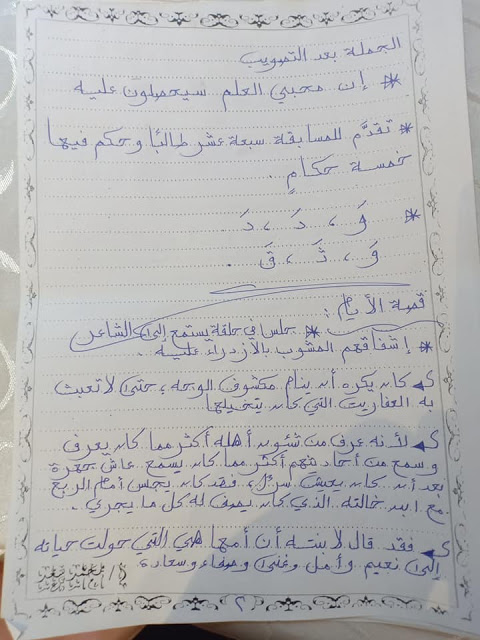 الجملة بعد التصويب
* إن محبي العلم سيحصلون عليه
* تقدَّم للمسابقة سبعة عشر طالبًا وحكم فيها
خمسة حكامٍ .
* وَ ، دَ ، دَ
وَ ، ثَ ، قَ .
قصة الأيام :
* جلس في حلقة يستمع إلى الشاعر
* إشفاقهم المشوب بالازدراء عليه .
كان يكره أن ينام مكشوف الوجه ، حتى لا تعبث
به العفاريت التي كان يتخيلها
لأنه عرف من شئون أهله أكثر مما كان يعرف
وسمع من أحاديثهم أكثر مما كان يسمع عاش جهرة
بعد أن كان يعيش سرًّا، فقد كان يجلس أمام الربع
مع ابن خالته الذي كان يصف له كل ما يجري .
فقد قال لابنته أن أمها هي التي حولت حياته
إلى نعيم وأمل وغنى وصفاء وسعادة
٢